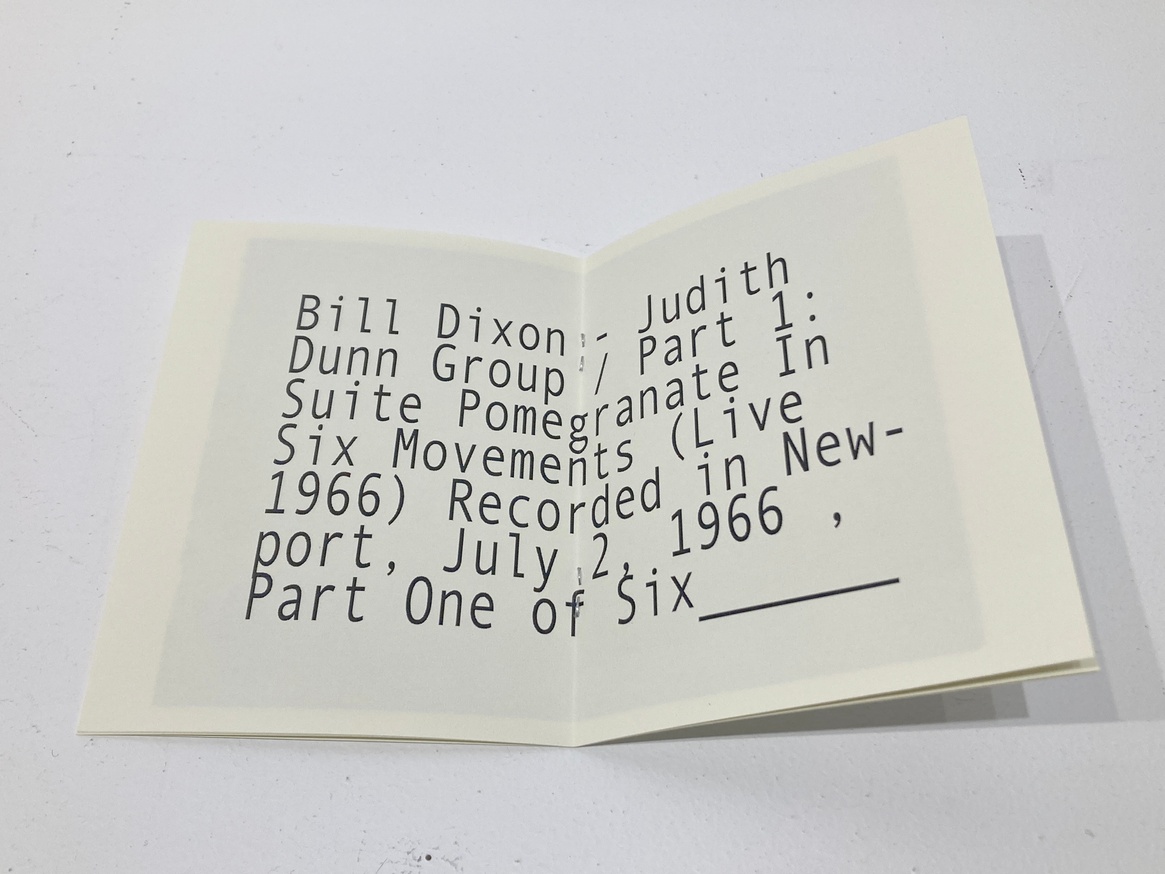 Bill Dixon - Judith
Dunn Group / Part 1:
Suite Pomegranate In
Six Movements (Live
1966) Recorded in New-
port, July 2, 1966 ,
Part One of Six______